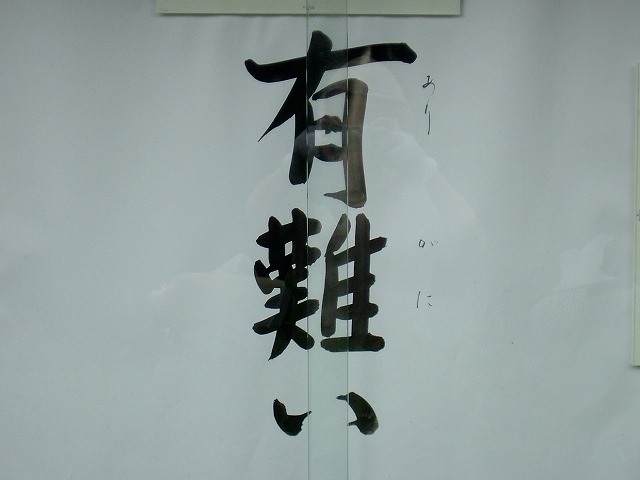 有難い
ありがに